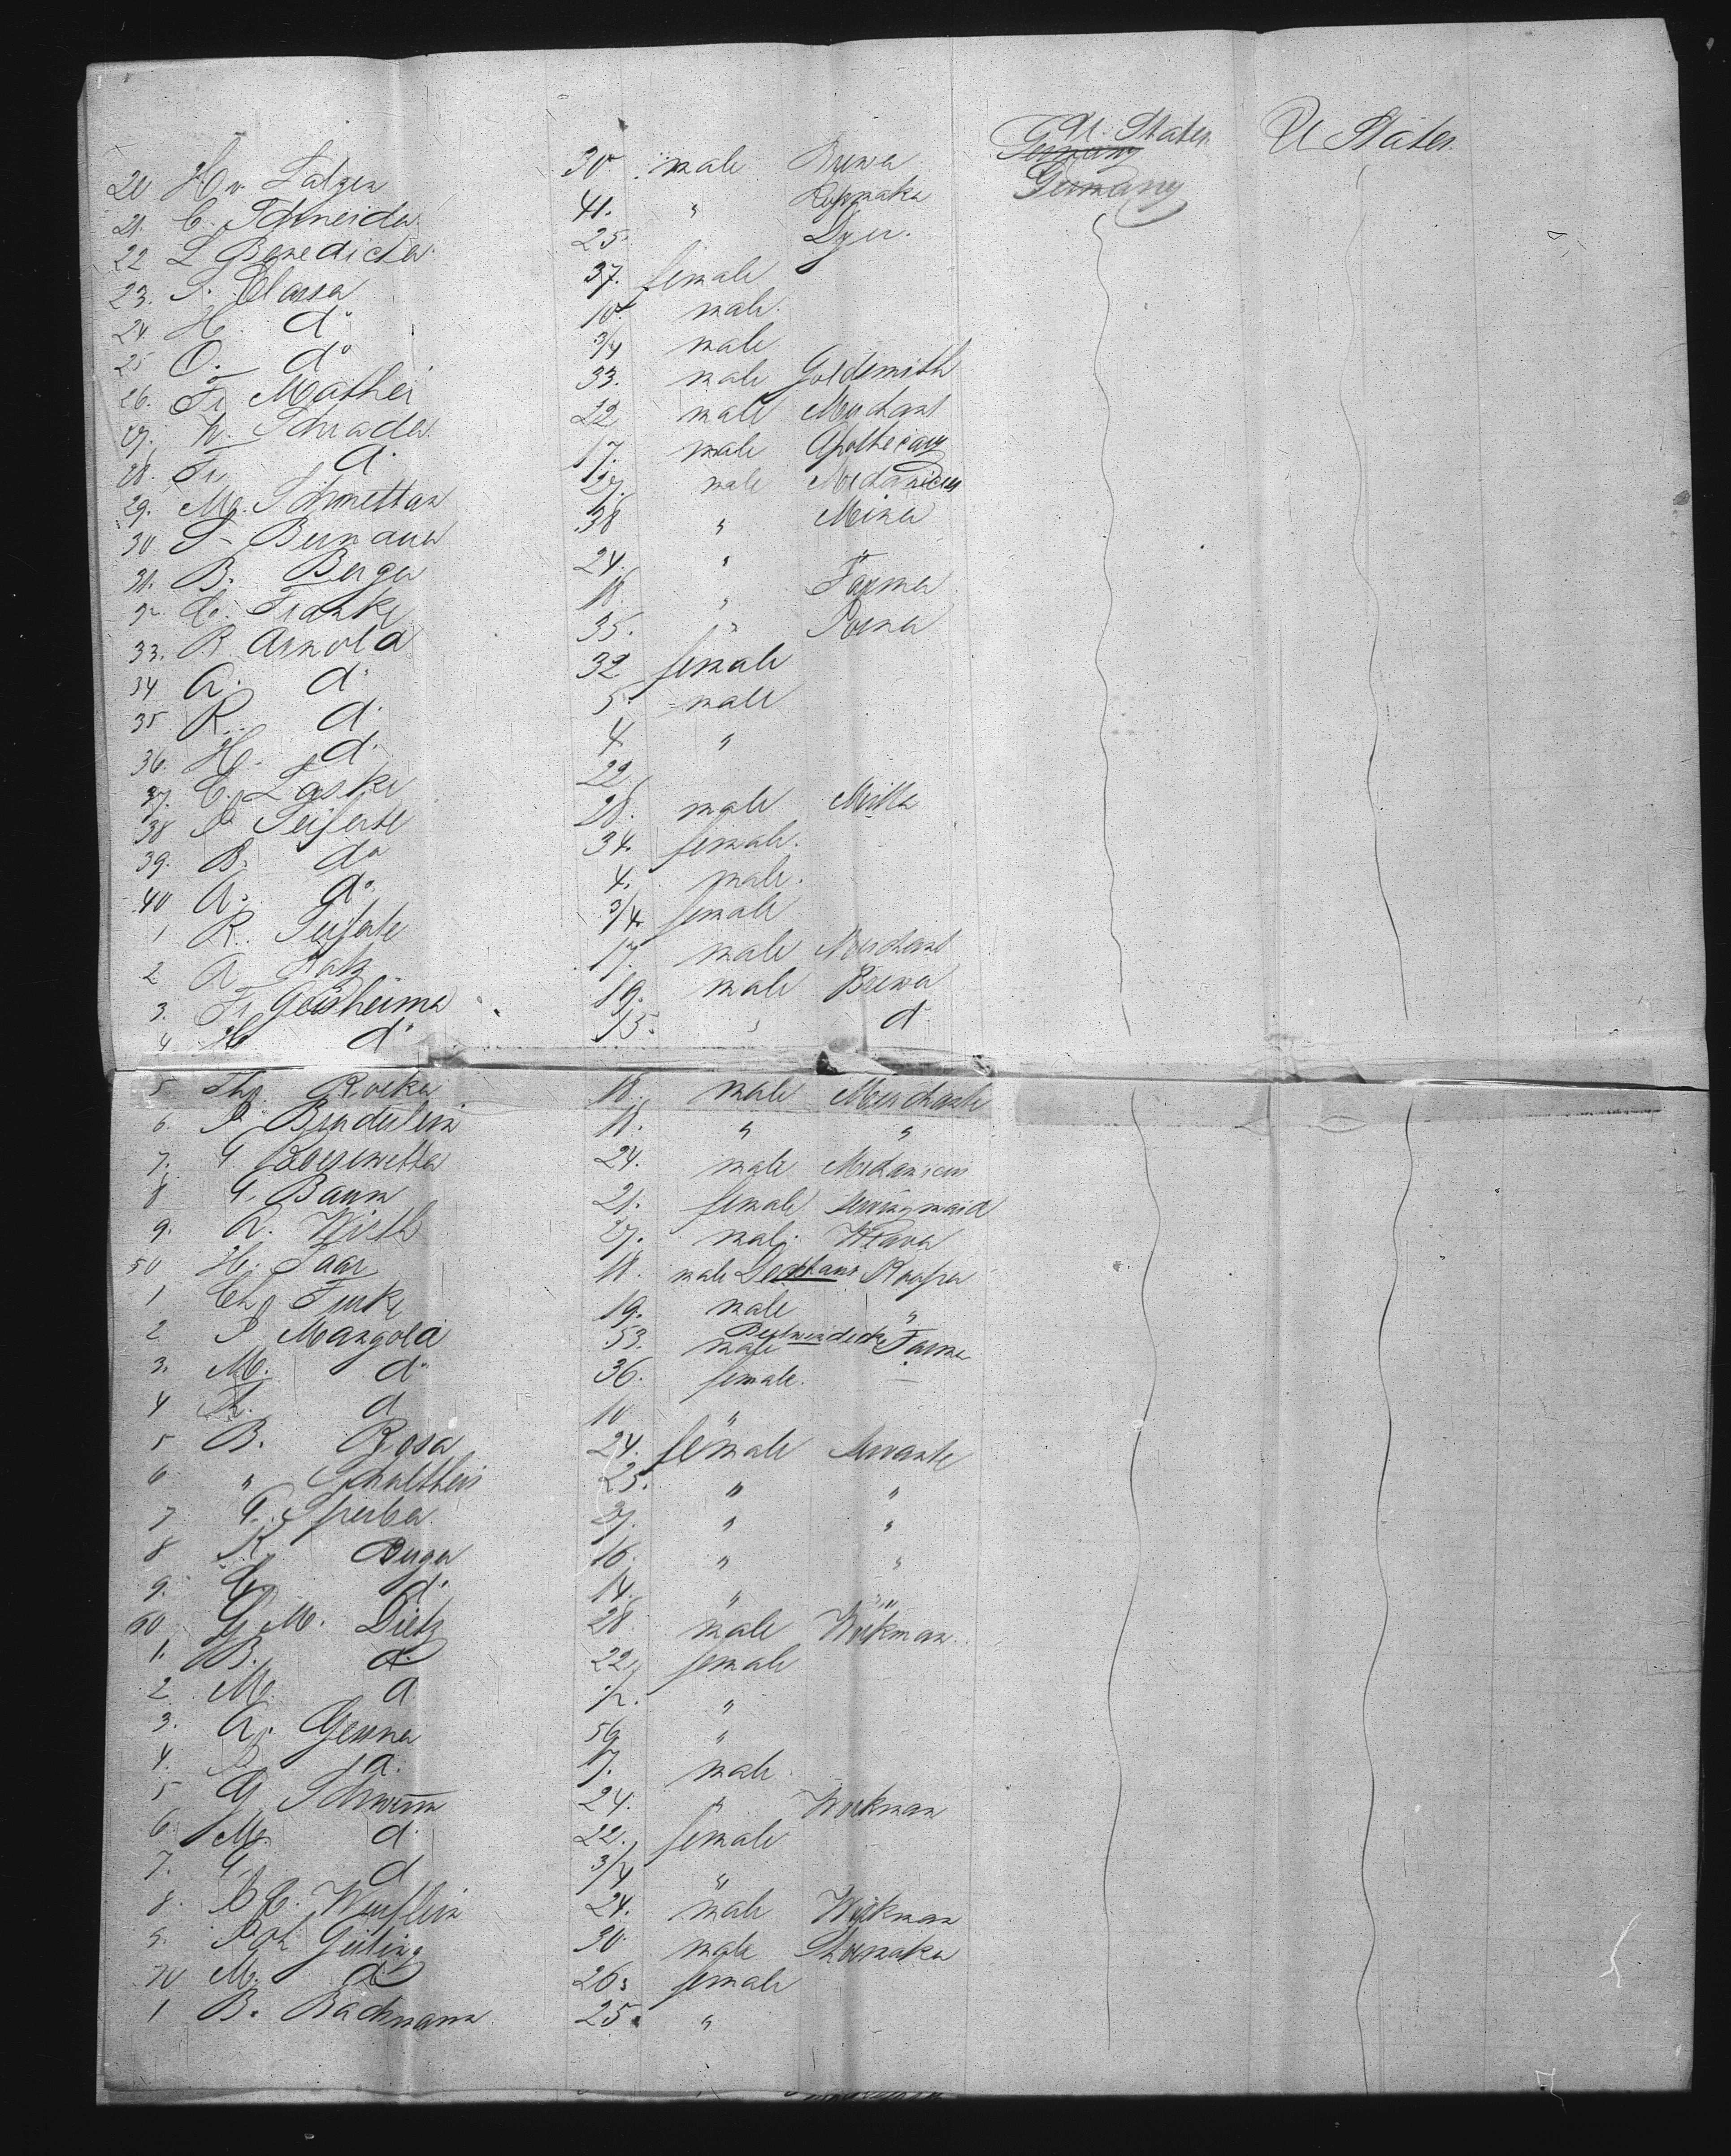 U. States U States
20 Hr. Salzer 30 male Brewer Germany
21. C. Schneider 41. " Germany
22 L Benedicter 25. Dyer.
23. S. Classa 37. female
24. H. do 10. male.
25 O. do 3/4 male
26. Fr. Mathei 33. male Goldsmith
27. W. Schrader 22 male Merchant
28. Fr. do 17. male Apothecary
29. Mr. Schmettau 27. male Mechanicus
30 S. Bernauer 38 " Miner
31. B. Berger 24. " "
32 C. Franke 18. " Farmer
33. R. Arnold 35. "
34 A. do 32 female
35 R. do 5. male
36. H. do 4 "
37. C. Laske 22
38 P. Seiferte 28. male Miller
39. B. do 34. female.
40 A. do 4. male.
1 R. Seiferte 3/4. female
2 A. Katz 17. male Merchant
3. Fr. Geisheimer 19. male Brewer
4 H do 15. " do
5 Th. Roeker 18. male Merchante
6. P. Benderlein 18. " "
7. G. Boesewetter 24. male Mechanicus
8 G. Baum 21. female
9. A. Wirth 27. male Weaver
50 H. Saar 18. male
1 Ch. Funk 19. male "
2 P. Mangold 53. male Farmer
3. M. do 36. female.
4 Th. do 10. "
5 B. Rosa 24. female Servante
6 " Schultheis 25. " "
7 G. Sperber. 27. " "
8 K. Berger 16. " "
9. C. do 14. " "
60 G. M. Dietz 28. male Workman.
1. B. do 22. female
2 M. do 1/2. "
3. A. Gessner 59 "
4. do 17. male.
5 G. Schwemm 24. " Workman
6. M. do 22. female
7. G. do 3/4 "
8. C. Weuflein 24. male Workman
9. Joh. Geiling 30 male Shoemaker
70 M. do 26. female
1 B. Bachmann 25. "